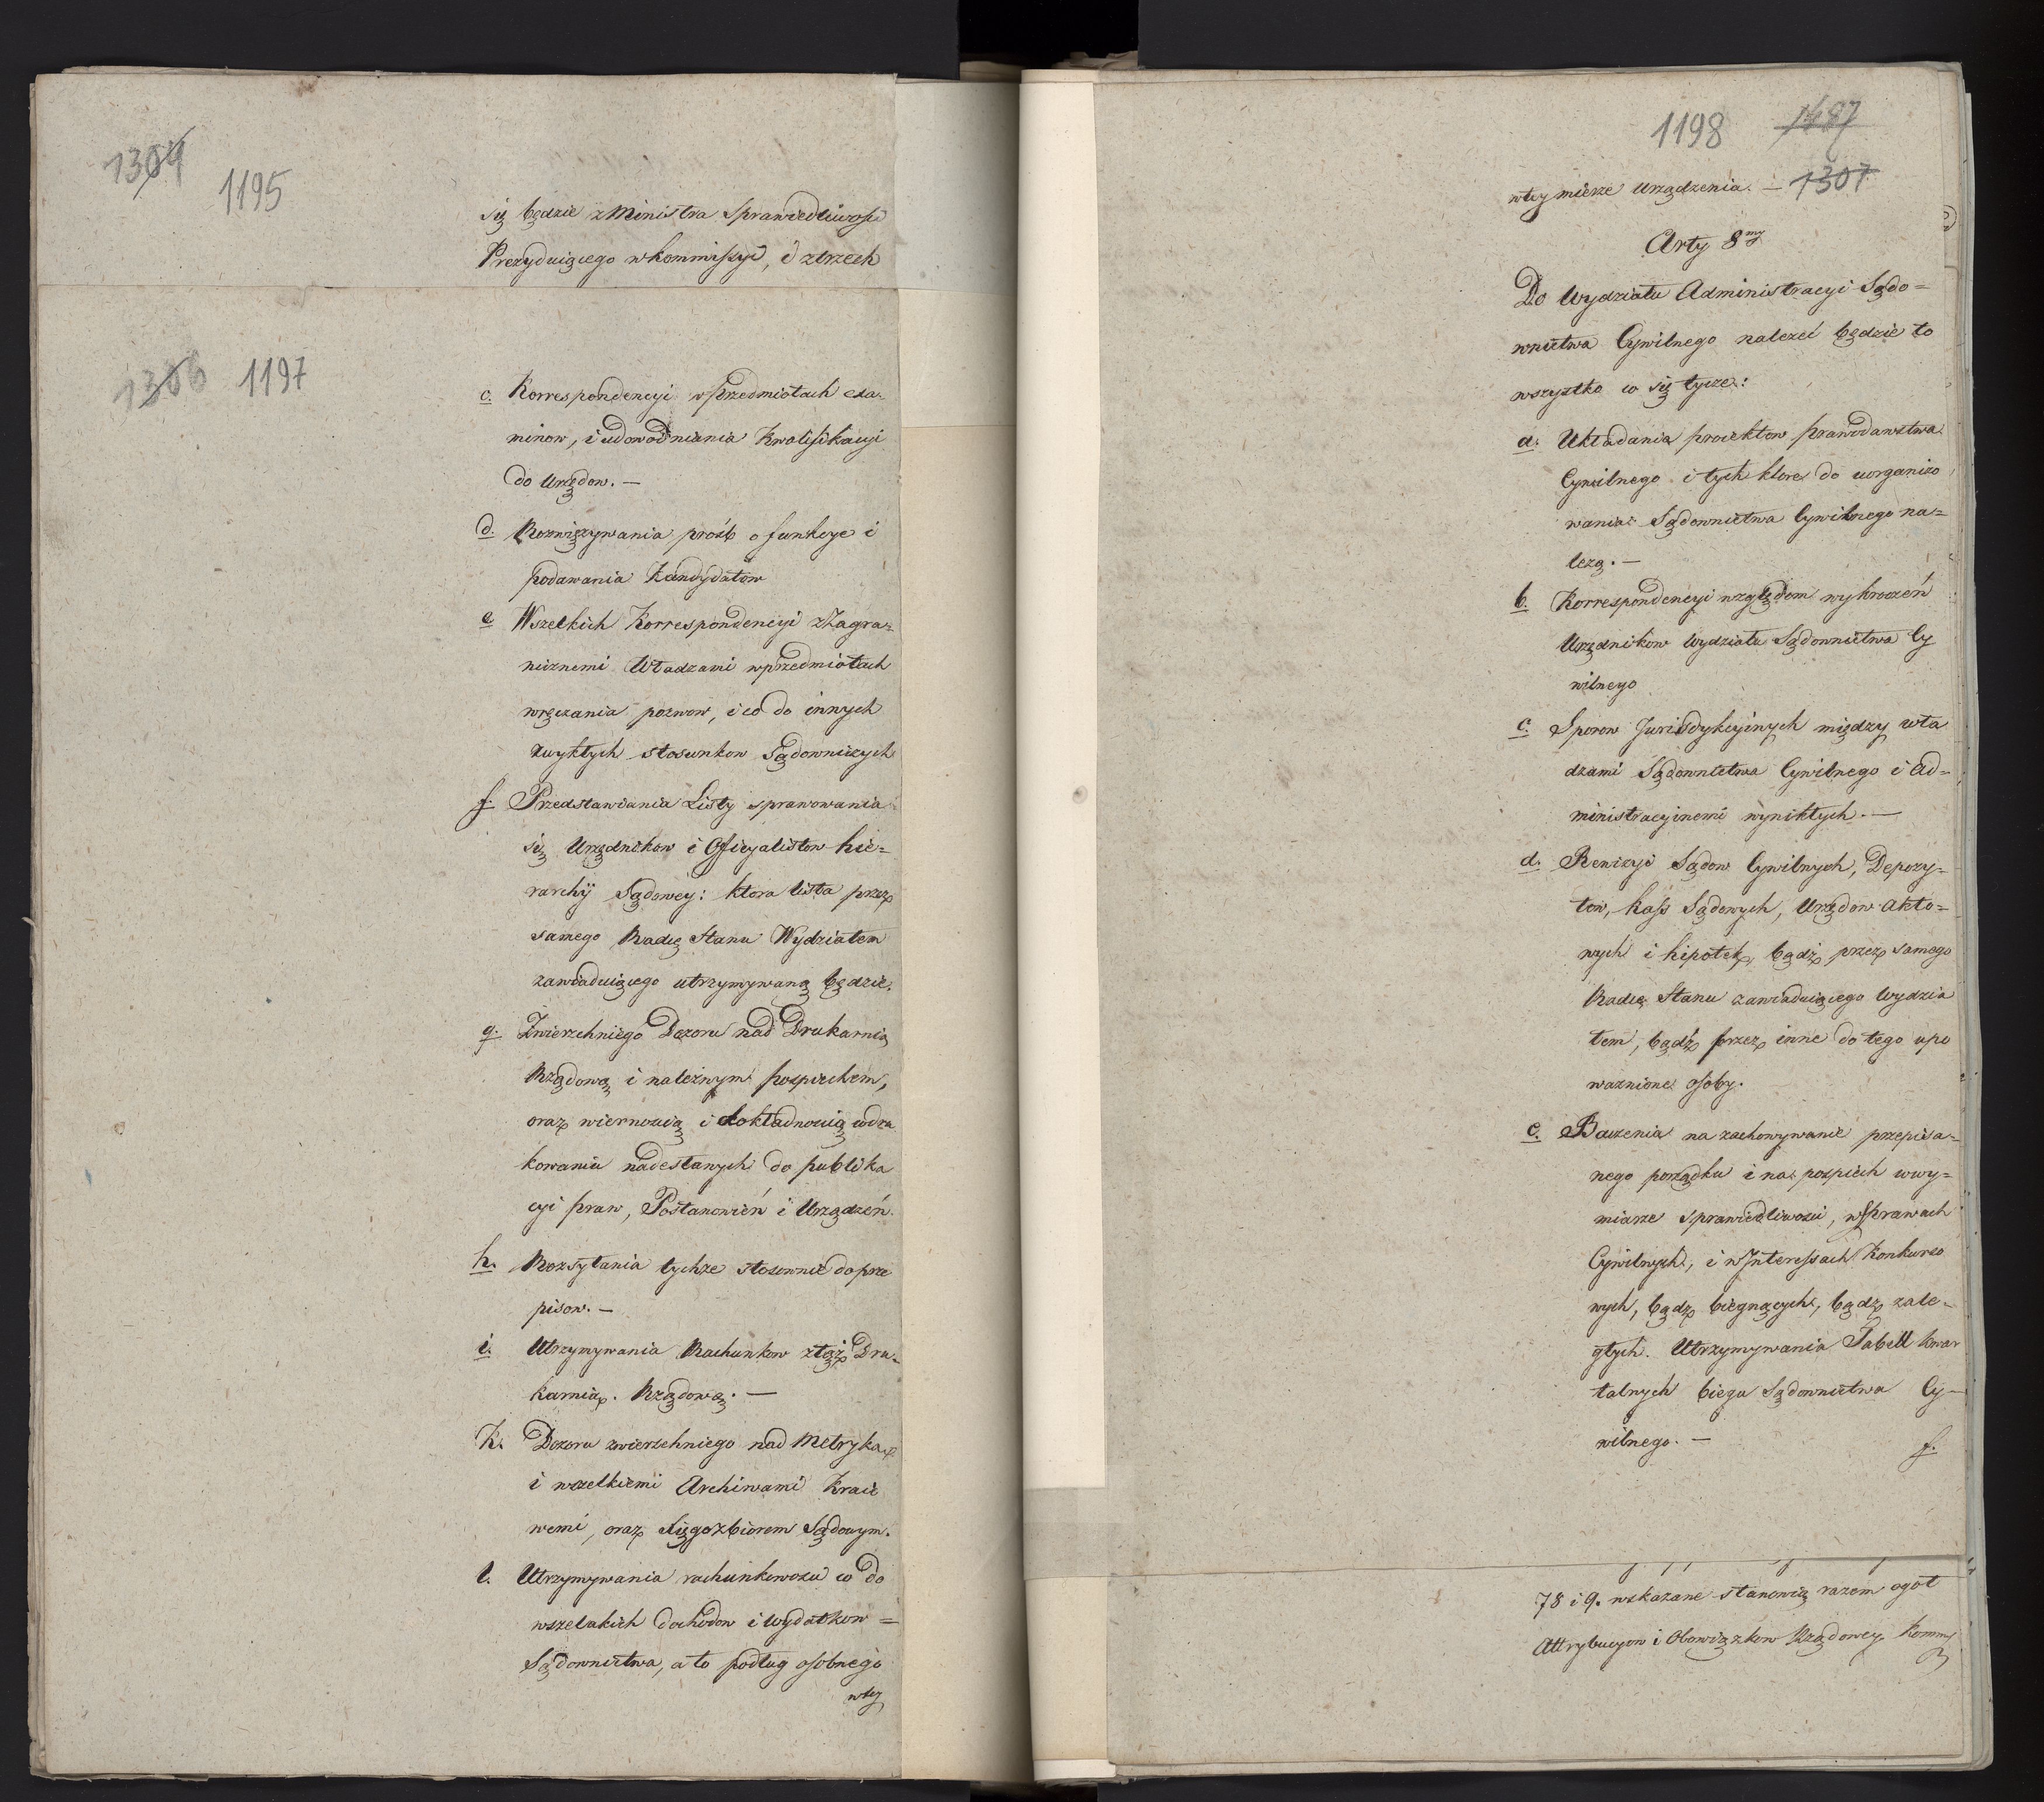 1304
1195
się będzie z Ministra Sprawiedliwości
Prezyduiącego w Kommissyi, i z trzech
1306 1197
c. Korrespondencyi w przedmiotach exa-
minow, i udowodniania Kwalifikacyi
do Urzędow. —
d. Rozwiązywania prośb o funkcye i
podawania Kandydatow
e. Wszelkich Korrespondencyi z Zagra-
nicznemi Władzami w przedmiotach
wręczania pozwow, i co do innych
zwykłych stosunkow Sądowniczych
f. Przedstawiania Listy sprawowania
się Urzędnikow i Officyalistow hie=
rarchij Sądowéy: ktora lista przez
samego Radcę Stanu Wydziałem
zawiaduiącego utrzymywaną będzie.
g. Zwierzchniégo Dozoru nad Drukarnią
Rządową i należnym pospiechem,
oraz wiernością i dokładnością w dru
kowaniu nadesłanych do publika
cyi praw, Postanowień i Urządzeń.
h. Rozsyłania tychże stosownie do prze
pisow. —
i. Utrzymywania Rachunkow z tąż Dru-
karnią Rządową. —
K. Dozoru zwierzchniego nad Metryką
i wszelkiemi Archiwami Kraio
wemi, oraz Xięgozbiorem Sądowym.
l. Utrzymywania rachunkowości co do
wszelakich dochodow i wydatkow =
Sądownictwa, a to podług osobnego
w tey
1198 1487
w tey mierze urządzenia. — 1307
Arty 8my
Do Wydziału Administracyi Sądo=
wnictwa Cywilnego należeć będzie to
wszystko co się tycze:
a. Układania proiektow prawodawstwa
Cywilnego i tych ktore do uorganizo
wania Sądownictwa Cywilnego na=
leżą. —
b. Korrespondencyi względem wykroczeń
Urzędnikow Wydziału Sądownictwa Cy
wilnego
c. Sporow Jurisdykcyinych między wła
dzami Sądownictwa Cywilnego i Ad-
ministracyinemi wynikłych. —
d. Rewizyi Sądow Cywilnych, Depozy-
tow, Kass Sądowych, Urzędow Akto=
wych i hipotek, bądź przez samego
Radcę Stanu zawiaduiącego Wydzia
łem, bądź przez inne do tego upo
ważnione osoby.
e. Baczenia na zachowywanie przepisa-
nego porządku i na pospiech w wy=
miarze sprawiedliwości, w Sprawach
Cywilnych, i w Interessach Konkurso
wych, bądź biegnących, bądź zale-
głych. Utrzymywania Tabell kwar
talnych biegu Sądownictwa Cy-
wilnego. —
f.
78 i 9. wskazane stanowią razem ogół
Attrybucyow i Obowiązkow Rządowey Kommi